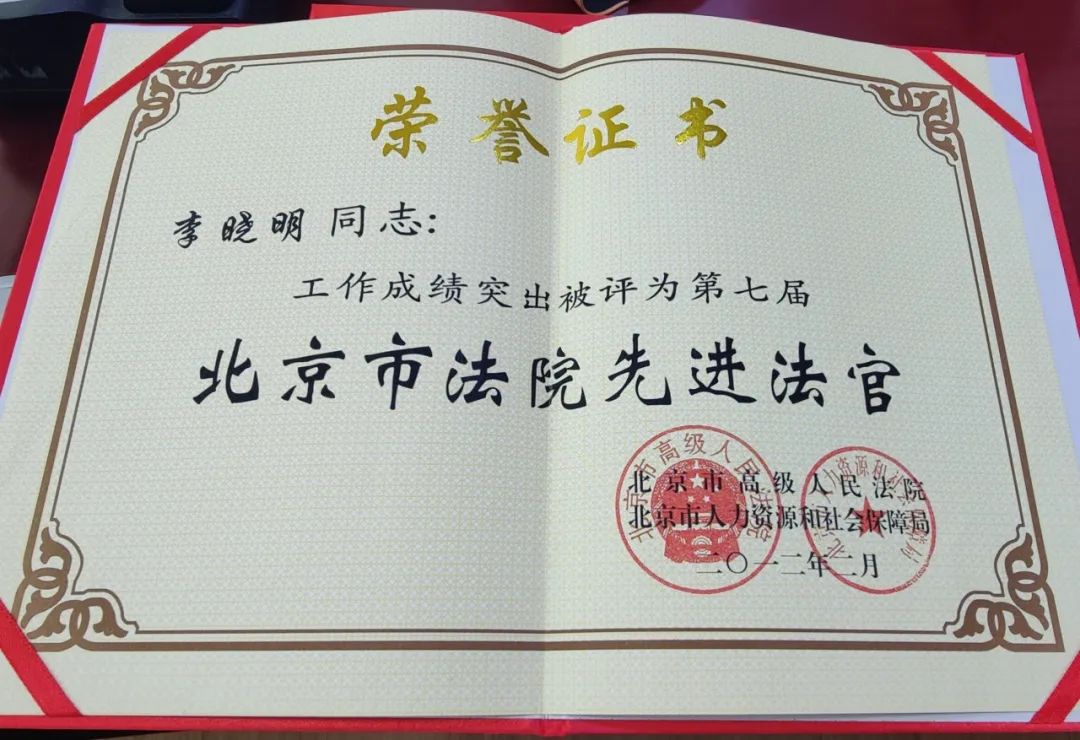 荣誉证书
李晓明 同志:
工作成绩突出被评为第七届
北京市法院先进法官
北京市高级人民法院
北京市人力资源和社会保障局
二〇一二年二月
北京市高级人民法院
北京市人力资源和社会保障局